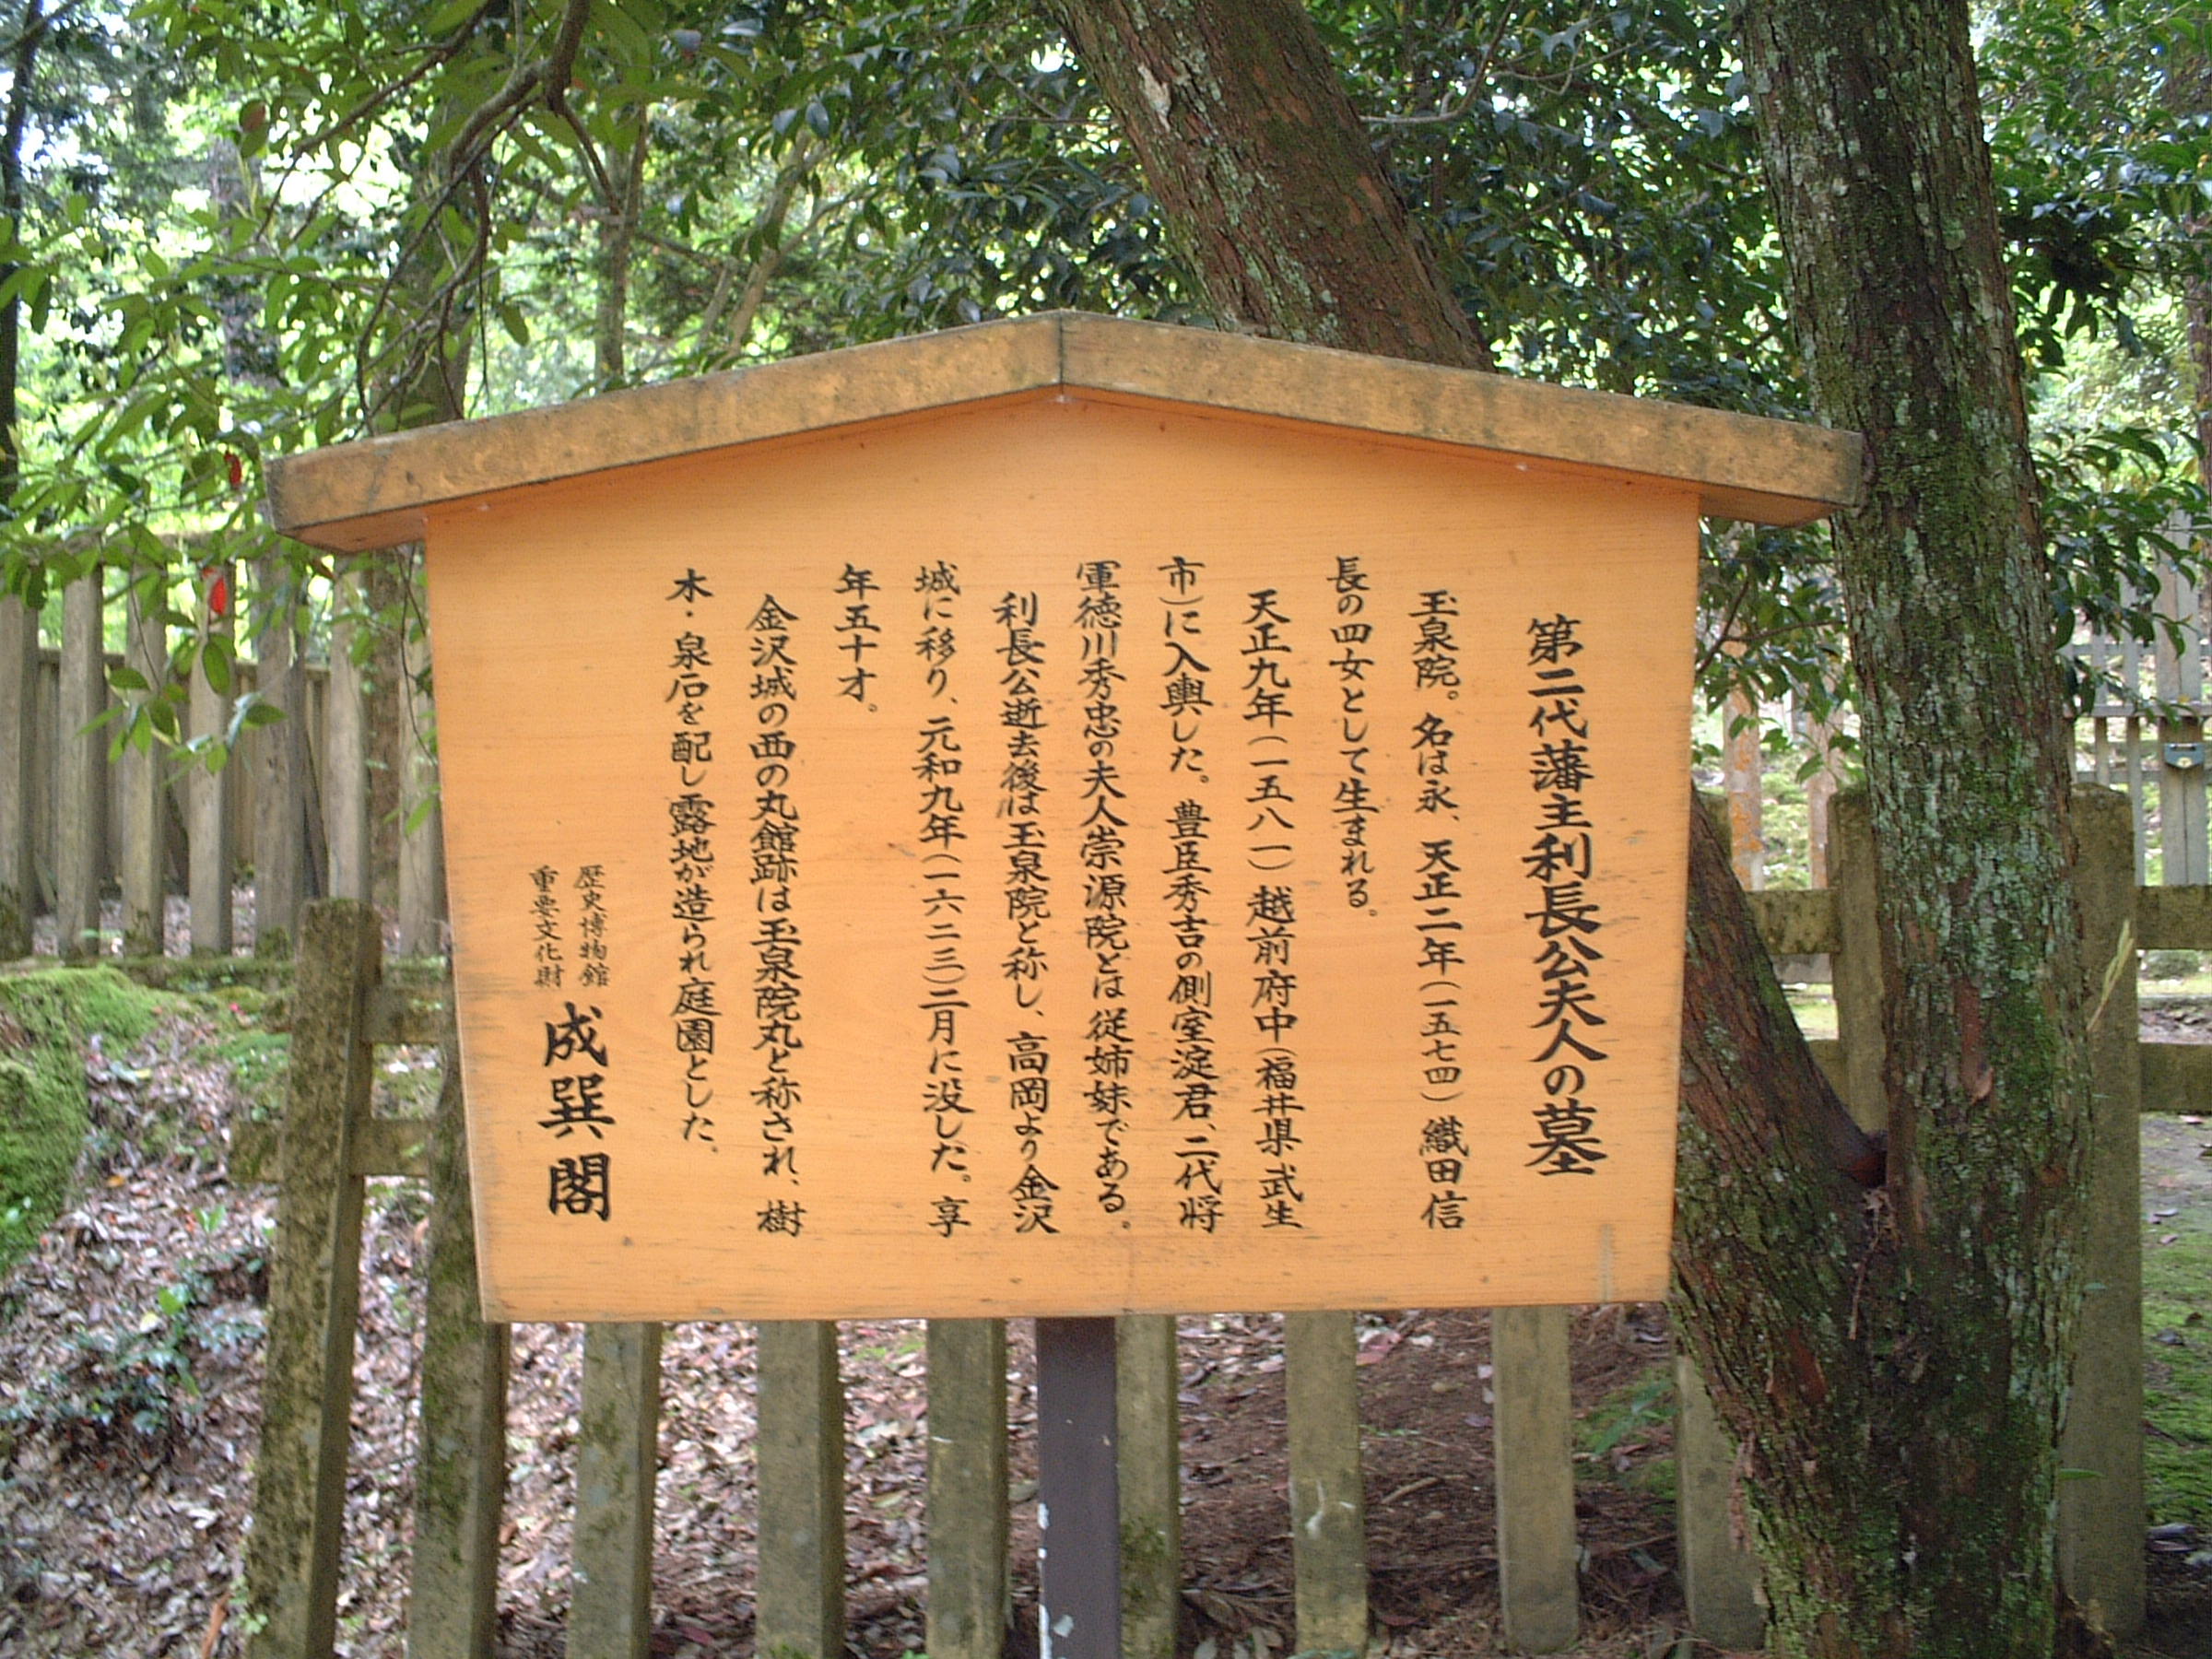 第二代藩主利長公夫人の墓
玉泉院。名は永、天正二年(一五七四)織田信
長の四女として生まれる。
天正九年(一五八一)越前府中(福井県武生
市)に入輿した。豊臣秀吉の側室淀君、二代将
軍徳川秀忠の夫人崇源院とは従姉妹である。
利長公逝去後は玉泉院と称し、高岡より金沢
城に移り、元和九年(一六二三)二月に没した。享
年五十才。
金沢城の西の丸館跡は玉泉院丸と称され、樹
木・泉石を配し露地が造られ庭園とした。
歴史博物館
重要文化財
成巽閣